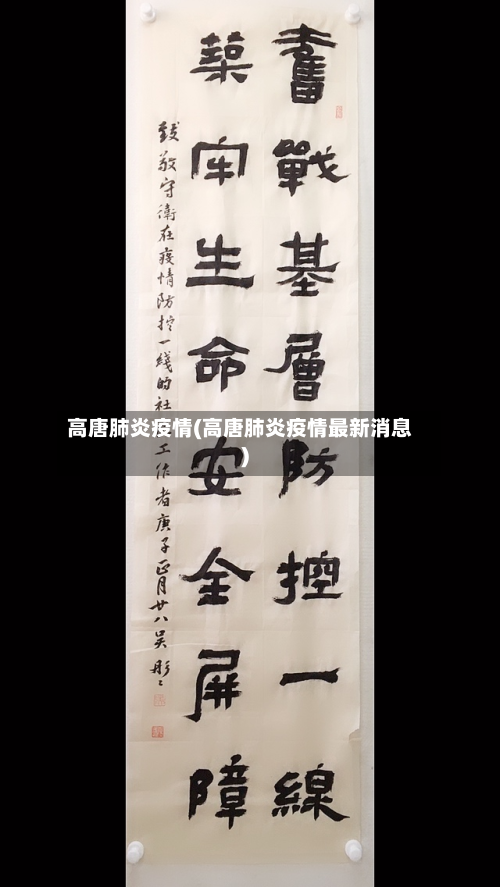 奮戰基層防控一線
築牢生命安全屏障
致敬守衛在疫情防控一綫的社工作者庚子正月廿八吴彤〻
高唐肺炎疫情(高唐肺炎疫情最新消息
)